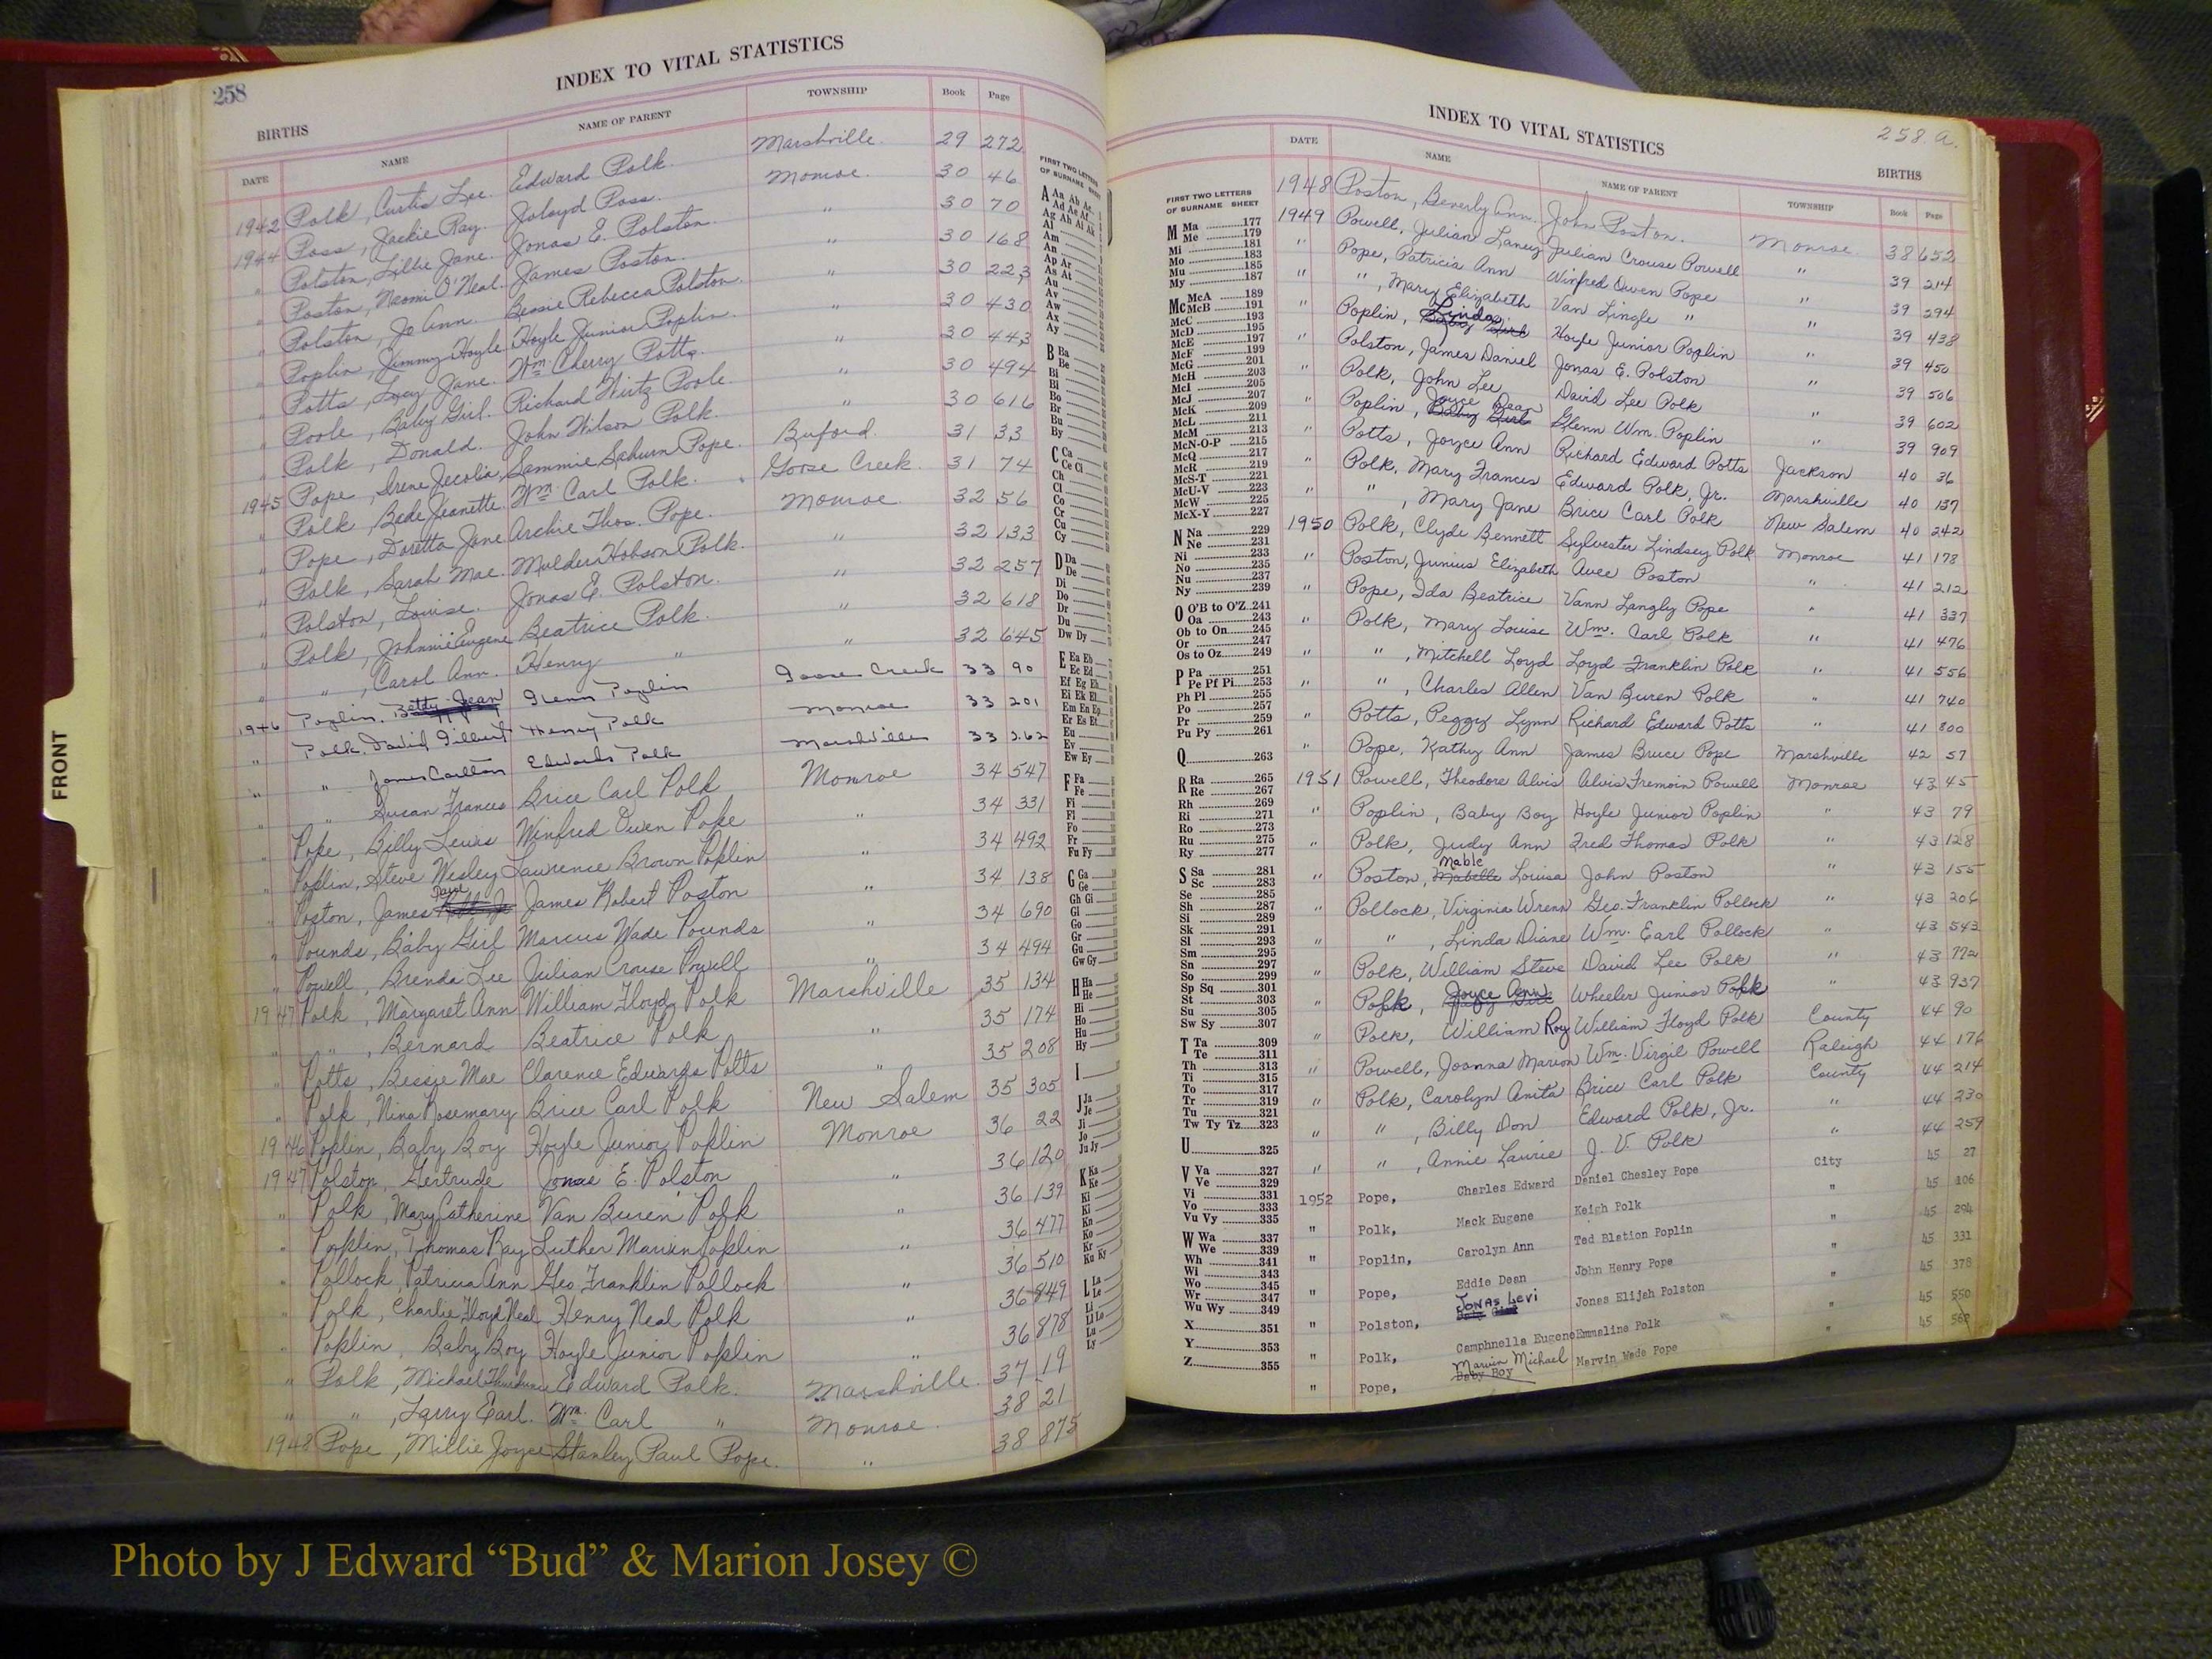 258
INDEX TO VITAL STATISTICS
BIRTHS
DATE NAME NAME OF PARENT TOWNSHIP Book Page
1942 Polk, Curtis Lee. Edward Polk. Marshville. 29 272
1944 Poss, Jackie Ray. Joloyd Poss. Monroe. 30 46
" Polston, Lillie Jane. Jonas E. Polston. " 30 70
" Poston, Naomi O'Neal. James Poston. " 30 168
" Polston, Jo Ann. Bessie Rebecca Polston. " 30 223
" Poplin, Jimmy Hoyle Hoyle Junior Poplin. " 30 430
" Potts, Lucy Jane. Wm. Cherry Potts. " 30 443
" Poole, Baby Girl. Richard Wirtz Poole. " 30 494
" Polk, Donald. John Wilson Polk. " 30 616
1945 Pope, Irene Jecolia, Sammie Pope. Buford. 31 33
" Polk Bede Jeanette. Wm. Carl Polk. Goose Creek. 31 74
" Pope, Doretta Jane Archie Thos. Pope. Monroe. 32 56
" Polk, Sarah Mae. Hobson Polk. " 32 133
" Polston, Louise. Jonas E. Polston. " 32 257
" Polk, Johnnie Eugene Beatrice Polk. " 32 618
" " , Carol Ann. Henry " " 32 645
1946 Poplin, Betty Jean Glenn Poplin Goose Creek 33 90
" Polk, David Gilbert Henry Polk Monroe 33 201
" " James Carlton Edwards Polk Marshville 33 262
" " Susan Frances Brice Carl Polk Monroe 34 547
" Pope, Billy Lewis Winfred Owen Pope " 34 331
" Poplin, Steve Wesley Lawrence Brown Poplin " 34 492
" Poston, James Paul James Robert Poston " 34 138
" Pounds, Baby Girl Marcus Wade Pounds " 34 690
" Powell, Brenda Lee Julian Crouse Powell " 34 494
1947 Polk, Margaret Ann William Floyd Polk Marshville 35 134
" " , Bernard Beatrice Polk " 35 174
" Potts, Bessie Mae Clarence Edwards Potts " 35 208
" Polk, Nina Rosemary Brice Carl Polk New Salem 35 305
1946 Poplin, Baby Boy Hoyle Junior Poplin Monroe 36 22
1947 Polston, Gertrude Jonas E. Polston " 36 120
" Polk, Mary Catherine Van Buren Polk " 36 139
" Poplin, Thomas Ray Luther Marvin Poplin " 36 477
" Pollock, Patricia Ann Geo. Franklin Pollock " 36 510
" Polk, Charlie Floyd Neal Henry Neal Polk " 36 849
" Poplin, Baby Boy Hoyle Junior Poplin " 36 878
" Polk, Michael Edward Polk. Marshville. 37 19
" " , Larry Earl. Wm. Carl " Monroe. 38 21
1948 Pope, Millie Joyce Stanley Paul Pope. " 38 875
FRONT
FIRST TWO LETTERS
OF SURNAME SHEET
A Aa Ab Ac
Ad Ae Af
Ag Ah Ai Ak
Al
Am
An
Ap Ar
As At
Au
Av
Aw
Ax
Ay
B Ba
Be
Bi
Bl
Bo
Br
Bu
By
C Ca
Ce Ci
Ch
Cl
Co
Cr
Cu
Cy
D Da
De
Di
Do
Dr
Du
Dw Dy
E Ea Eb
Ec Ed
Ef Eg Eh
Ei Ek El
Em En Ep
Er Es Et
Eu
Ev
Ew Ey
F Fa
Fe
Fi
Fl
Fo
Fr
Fu Fy
G Ga
Ge
Gh Gi
Gl
Go
Gr
Gu
Gw Gy
H Ha
He
Hi
Ho
Hu
Hy
I
J Ja
Je
Ji
Jo
Ju Jy
K Ka
Ke
Ki
Kl
Kn
Ko
Kr
Ku Ky
L La
Le
Li
Ll Lo
Lu
Ly
INDEX TO VITAL STATISTICS
258 a.
BIRTHS
FIRST TWO LETTERS
OF SURNAME SHEET
M Ma 177
Me 179
Mi 181
Mo 183
Mu 185
My 187
Mc McA 189
McB 191
McC 193
McD 195
McE 197
McF 199
McG 201
McH 203
McI 205
McJ 207
McK 209
McL 211
McM 213
McN-O-P 215
McQ 217
McR 219
McS-T 221
McU-V 223
McW 225
McX-Y 227
N Na 229
Ne 231
Ni 233
No 235
Nu 237
Ny 239
O O'B to O'Z 241
Oa 243
Ob to On 245
Or 247
Os to Oz 249
P Pa 251
Pe Pf Pi 253
Ph Pl 255
Po 257
Pr 259
Pu Py 261
Q 263
R Ra 265
Re 267
Rh 269
Ri 271
Ro 273
Ru 275
Ry 277
S Sa 281
Sc 283
Se 285
Sh 287
Si 289
Sk 291
Sl 293
Sm 295
Sn 297
So 299
Sp Sq 301
St 303
Su 305
Sw Sy 307
T Ta 309
Te 311
Th 313
Ti 315
To 317
Tr 319
Tu 321
Tw Ty Tz 323
U 325
V Va 327
Ve 329
Vi 331
Vo 333
Vu Vy 335
W Wa 337
We 339
Wh 341
Wi 343
Wo 345
Wr 347
Wu Wy 349
X 351
Y 353
Z 355
DATE NAME NAME OF PARENT TOWNSHIP Book Page
1948 Poston, Beverly Ann. John Poston. Monroe. 38 652
1949 Powell, Julian Laney Julian Crouse Powell " 39 214
" Pope, Patricia Ann Winfred Owen Pope " 39 294
" " , Mary Elizabeth Van Lingle " " 39 438
" Poplin, Linda Baby Girl Hoyle Junior Poplin " 39 450
" Polston, James Daniel Jonas E. Polston " 39 506
" Polk, John Lee David Lee Polk " 39 602
" Poplin, Joyce Dean Baby Girl Glenn Wm. Poplin " 39 909
" Potts, Joyce Ann Richard Edward Potts Jackson 40 36
" Polk, Mary Frances Edward Polk, Jr. Marshville 40 137
" " , Mary Jane Brice Carl Polk New Salem 40 242
1950 Polk, Clyde Bennett Sylvester Lindsey Polk Monroe 41 178
" Poston, Junius Elizabeth Avee Poston " 41 212
" Pope, Ida Beatrice Vann Langly Pope " 41 337
" Polk, Mary Louise Wm. Carl Polk " 41 476
" " , Mitchell Loyd Loyd Franklin Polk " 41 556
" " , Charles Allen Van Buren Polk " 41 740
" Potts, Peggy Lynn Richard Edward Potts " 41 800
" Pope, Kathy Ann James Bruce Pope Marshville 42 57
1951 Powell, Theodore Alvis Alvis Fremoin Powell Monroe 43 45
" Poplin, Baby Boy Hoyle Junior Poplin " 43 79
" Polk, Judy Ann Fred Thomas Polk " 43 128
" Poston, Mable Mabelle Louisa John Poston " 43 155
" Pollock, Virginia Wrenn Geo. Franklin Pollock " 43 206
" " , Linda Diane Wm. Earl Pollock " 43 543
" Polk, William Steve David Lee Polk " 43 772
" Polk, Joyce Ann Baby Girl Wheeler Junior Polk " 43 937
" Polk, William Roy William Floyd Polk County 44 90
" Powell, Joanna Marion Wm. Virgil Powell Raleigh 44 176
" Polk, Carolyn Anita Brice Carl Polk County 44 214
" " , Billy Don Edward Polk, Jr. " 44 230
" " , Annie Laurie J. V. Polk " 44 259
1952 Pope, Charles Edward Daniel Chesley Pope City 45 27
" Polk, Mack Eugene Keigh Polk " 45 106
" Poplin, Carolyn Ann Ted Blation Poplin " 45 294
" Pope, Eddie Dean John Henry Pope " 45 331
" Polston, Jonas Levi Jonas Elijah Polston " 45 378
" Polk, Camphnella Eugene Emmaline Polk " 45 550
" Pope, Marvin Michael Baby Boy Marvin Wade Pope " 45 562
Photo by J Edward “Bud” & Marion Josey ©